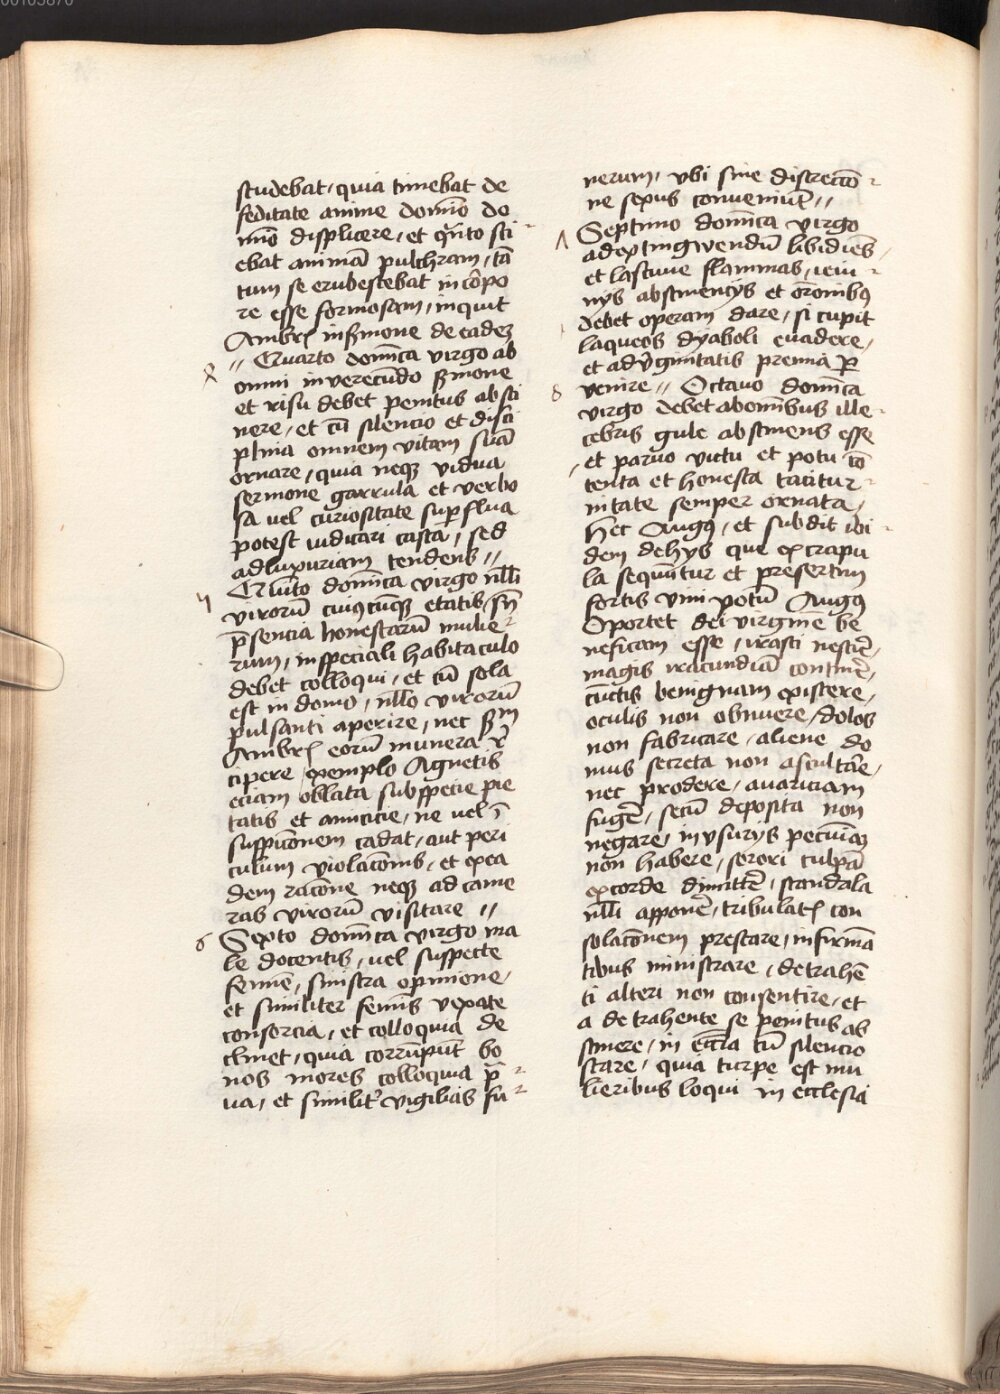 00103870
studebat, quia timebat de
feditate anime domīo de
mīo displicere, et qñto sci
ebat animā pulchram, tā
tum se erubescebat in cōpo
re esse formosam, inquit
Ambrꝭ in ẜmone de eadeꝫ
4 // Quarto domīca virgo ab
omni inverecūdo ẜmone
et risu debet penitus absti
nere, et cū silencio et disci
plina omnem vitam suā
ornare, quia neqꝫ vidua
sermone garrula et verbo
sa vel curiositate suꝑflua
potest iudicari casta, sed
ad luxuriam tendens //
5 Quīto domīca virgo nlli
virorū cuiꝯcūqꝫ etatis, sn̄
p̄sencia honestarū mulie
rum, in speciali habitaculo
debet colloqui, et cū sola
est in domo, nllo virorū
pulsanti aperire, nec ẜm
Ambrꝭ eorū munera re
cipere exemplo Agnetis
eciam oblata sub specie pie
tatis et amicicie, ne vel ī
suspicōnem cadat, aut peri
culum violacōnis, et ex ea
dem racōne neqꝫ ad came
ras virorū visitare //
6 Sexto domīca virgo ma
le docentis, vel suspecte
femīe, sinistra opinione,
et similiter femīs vexate
consorcia, et colloquia de
clinet, quia corrūpūt bo
nos mores colloquia p̄
ua, et similitꝰ vigilias fu
nerum, vbi sine discrecōo
ne sexus conveniūt //
Λ Septimo domīca virgo
ad extingwendū libidīes,
et lascive flammas, ieiu
nÿs abstinencÿs et orōnibꝯ
debet operam dare, si cupit
laqueos dyaboli evadere,
et ad v̄ginitatis premia ꝑ
8 venire // Octavo domīca
virgo debet ab omībus ille
cebris gule abstinens esse
, et parvo victu et potu cō
tenta et honesta tacitur
nitate semper ornata,
hec Augꝯ, et subdit ibi
dem de hÿs que ex crapu
la sequūtur et presertim
fortis vini potū Augꝯ
Oportet dei virginē be
neficam esse, irasci nescīe,
magis iracundiā continē,
cūctis benignam existere,
oculis non obnuere, dolos
non fabricare, aliene do
mus secreta non ascultāe,
nec prodere, avariciam
fugē, secū deposita non
negare, in vsurÿs pecuīaꝫ
non habere, sorori culpā
ex corde dimittē, scandala
nlli apponē, tribulatꝭ con
solacōnem prestare, infirmā
tibus ministrare, detrahē
ti alteri non consentire, et
a detrahente se penitus ab
stinere, in eccīa cū silencio
stare, quia turpe est mu
lieribus loqui in ecclesia